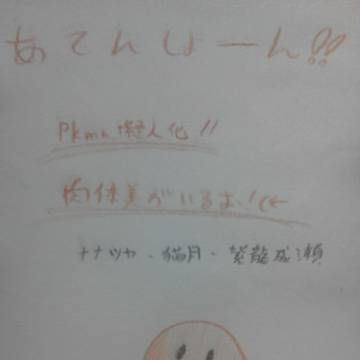 あてんしょーん!!
Pkmn擬人化!!
肉体美がいるよ!(←
ナナツヤ・猫月・紫龍成瀬